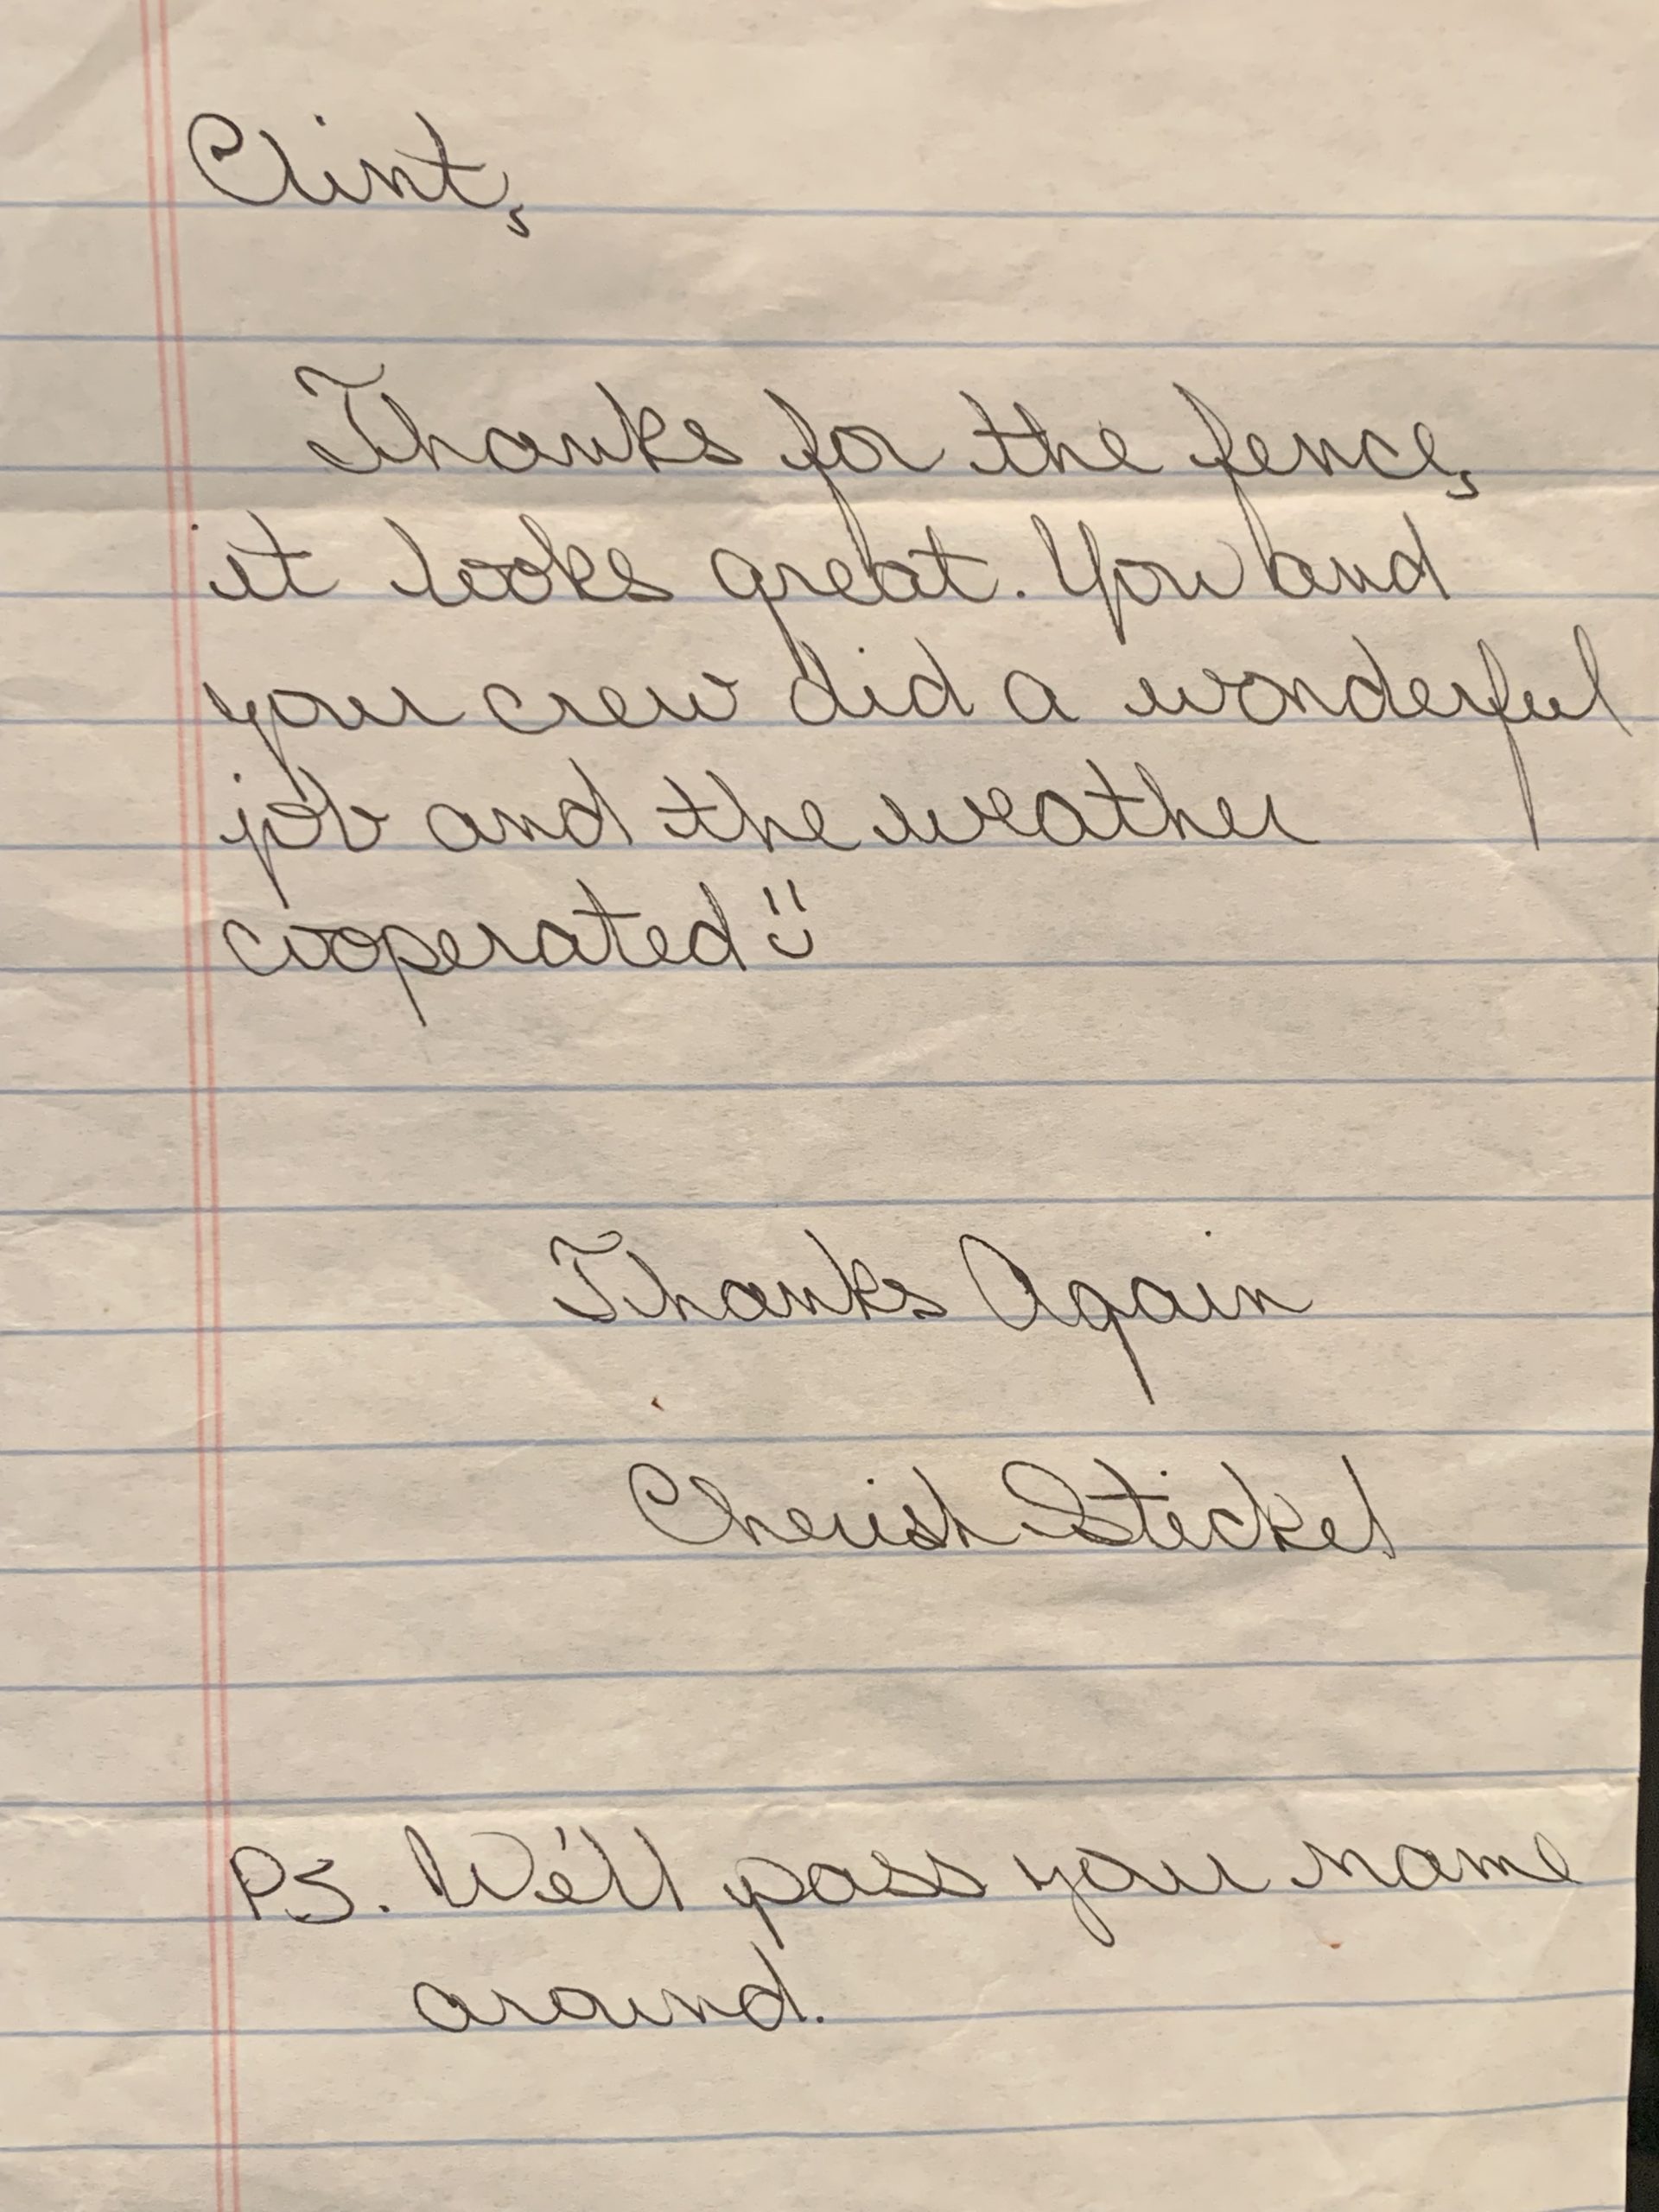 Clint,
Thanks for the fence,
it looks great. You and
your crew did a wonderful
job and the weather
cooperated :)
Thanks Again
Cherish Stickel
PS. We'll pass your name
around.